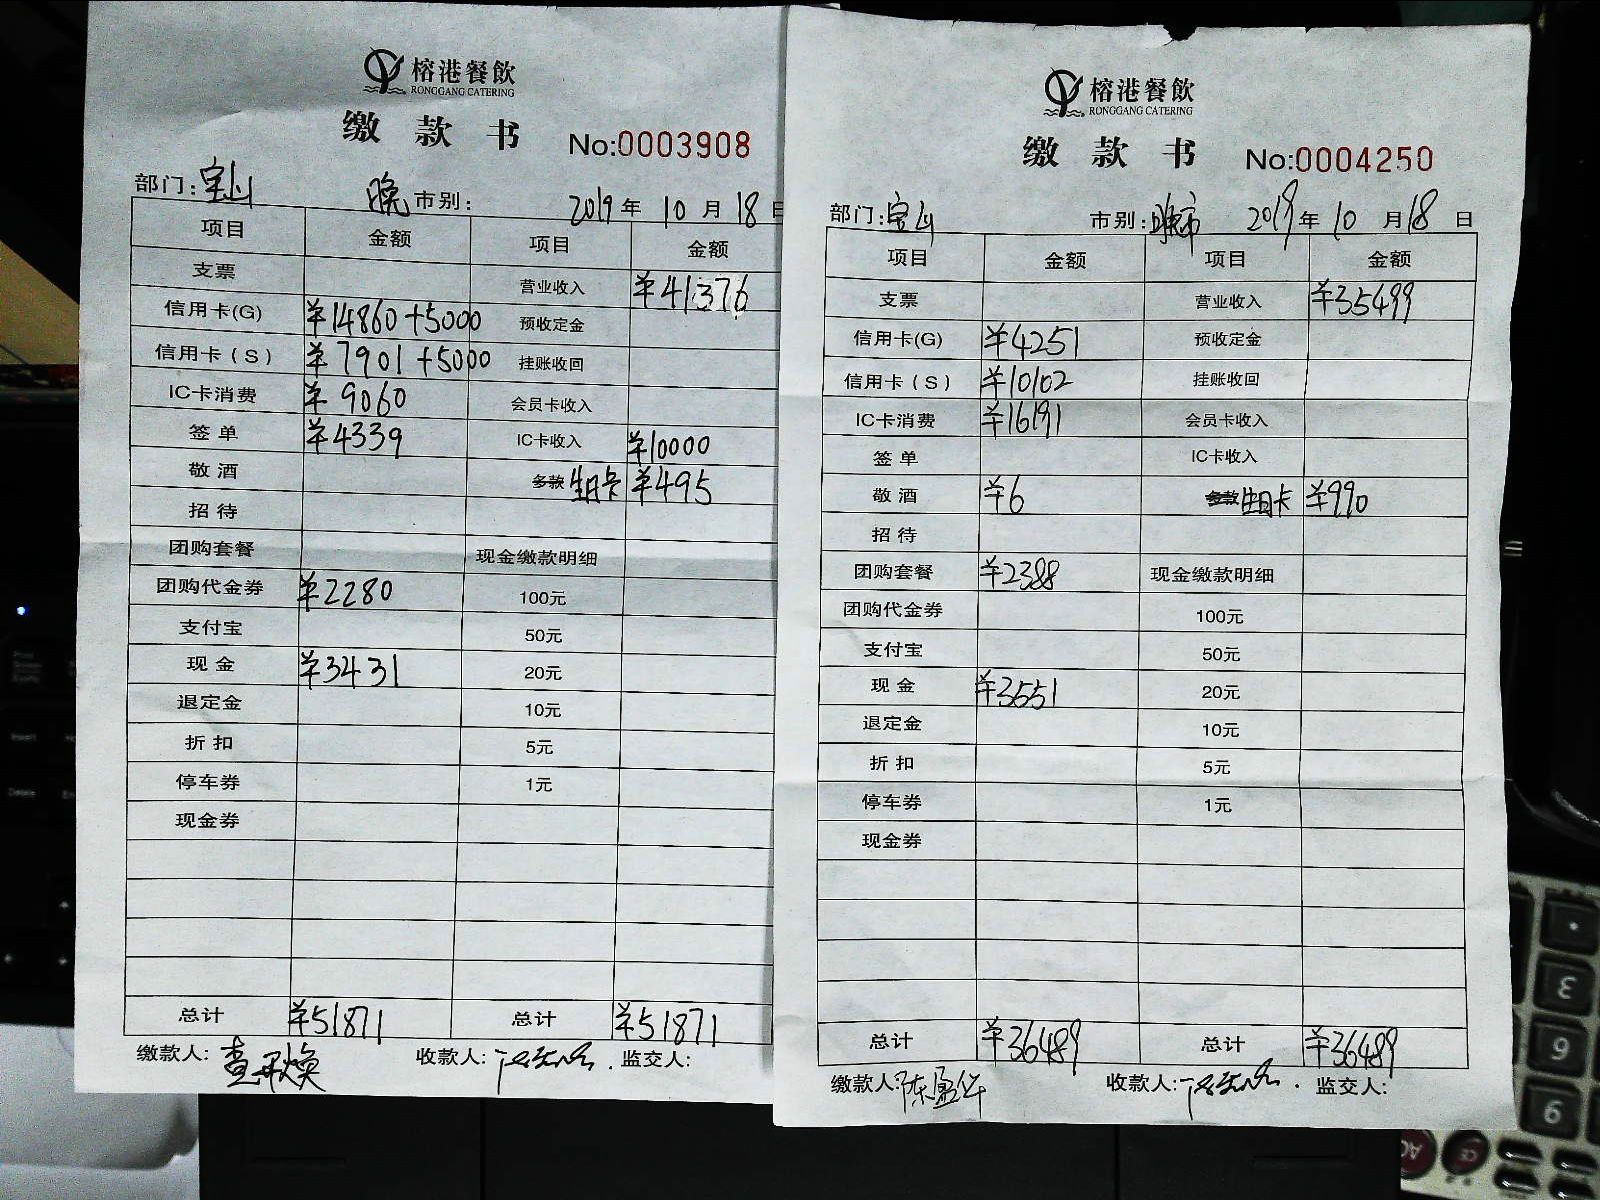 榕港餐飲
RONGGANG CATERING
缴款书 No:0003908
部门:宝山 晚 市别: 2019年10月18日
项目 金额 项目 金额
支票 营业收入 ¥41376
信用卡(G) ¥14860+5000 预收定金
信用卡(S) ¥7901+5000 挂账收回
IC卡消费 ¥9060 会员卡收入
签单 ¥4339 IC卡收入 ¥10000
敬酒 多款 生日卡 ¥495
招待
团购套餐 现金缴款明细
团购代金券 ¥2280 100元
支付宝 50元
现金 ¥3431 20元
退定金 10元
折扣 5元
停车券 1元
现金券
总计 ¥51871 总计 ¥51871
缴款人: 收款人: 监交人:
榕港餐飲
RONGGANG CATERING
缴款书 No:0004250
部门:宝山 市别:晚市 2019年10月18日
项目 金额 项目 金额
支票 营业收入 ¥35499
信用卡(G) ¥4251 预收定金
信用卡(S) ¥10102 挂账收回
IC卡消费 ¥16191 会员卡收入
签单 IC卡收入
敬酒 ¥6 多款 生日卡 ¥990
招待
团购套餐 ¥2388 现金缴款明细
团购代金券 100元
支付宝 50元
现金 ¥3551 20元
退定金 10元
折扣 5元
停车券 1元
现金券
总计 ¥36489 总计 ¥36489
缴款人:陈盈华 收款人: 监交人: